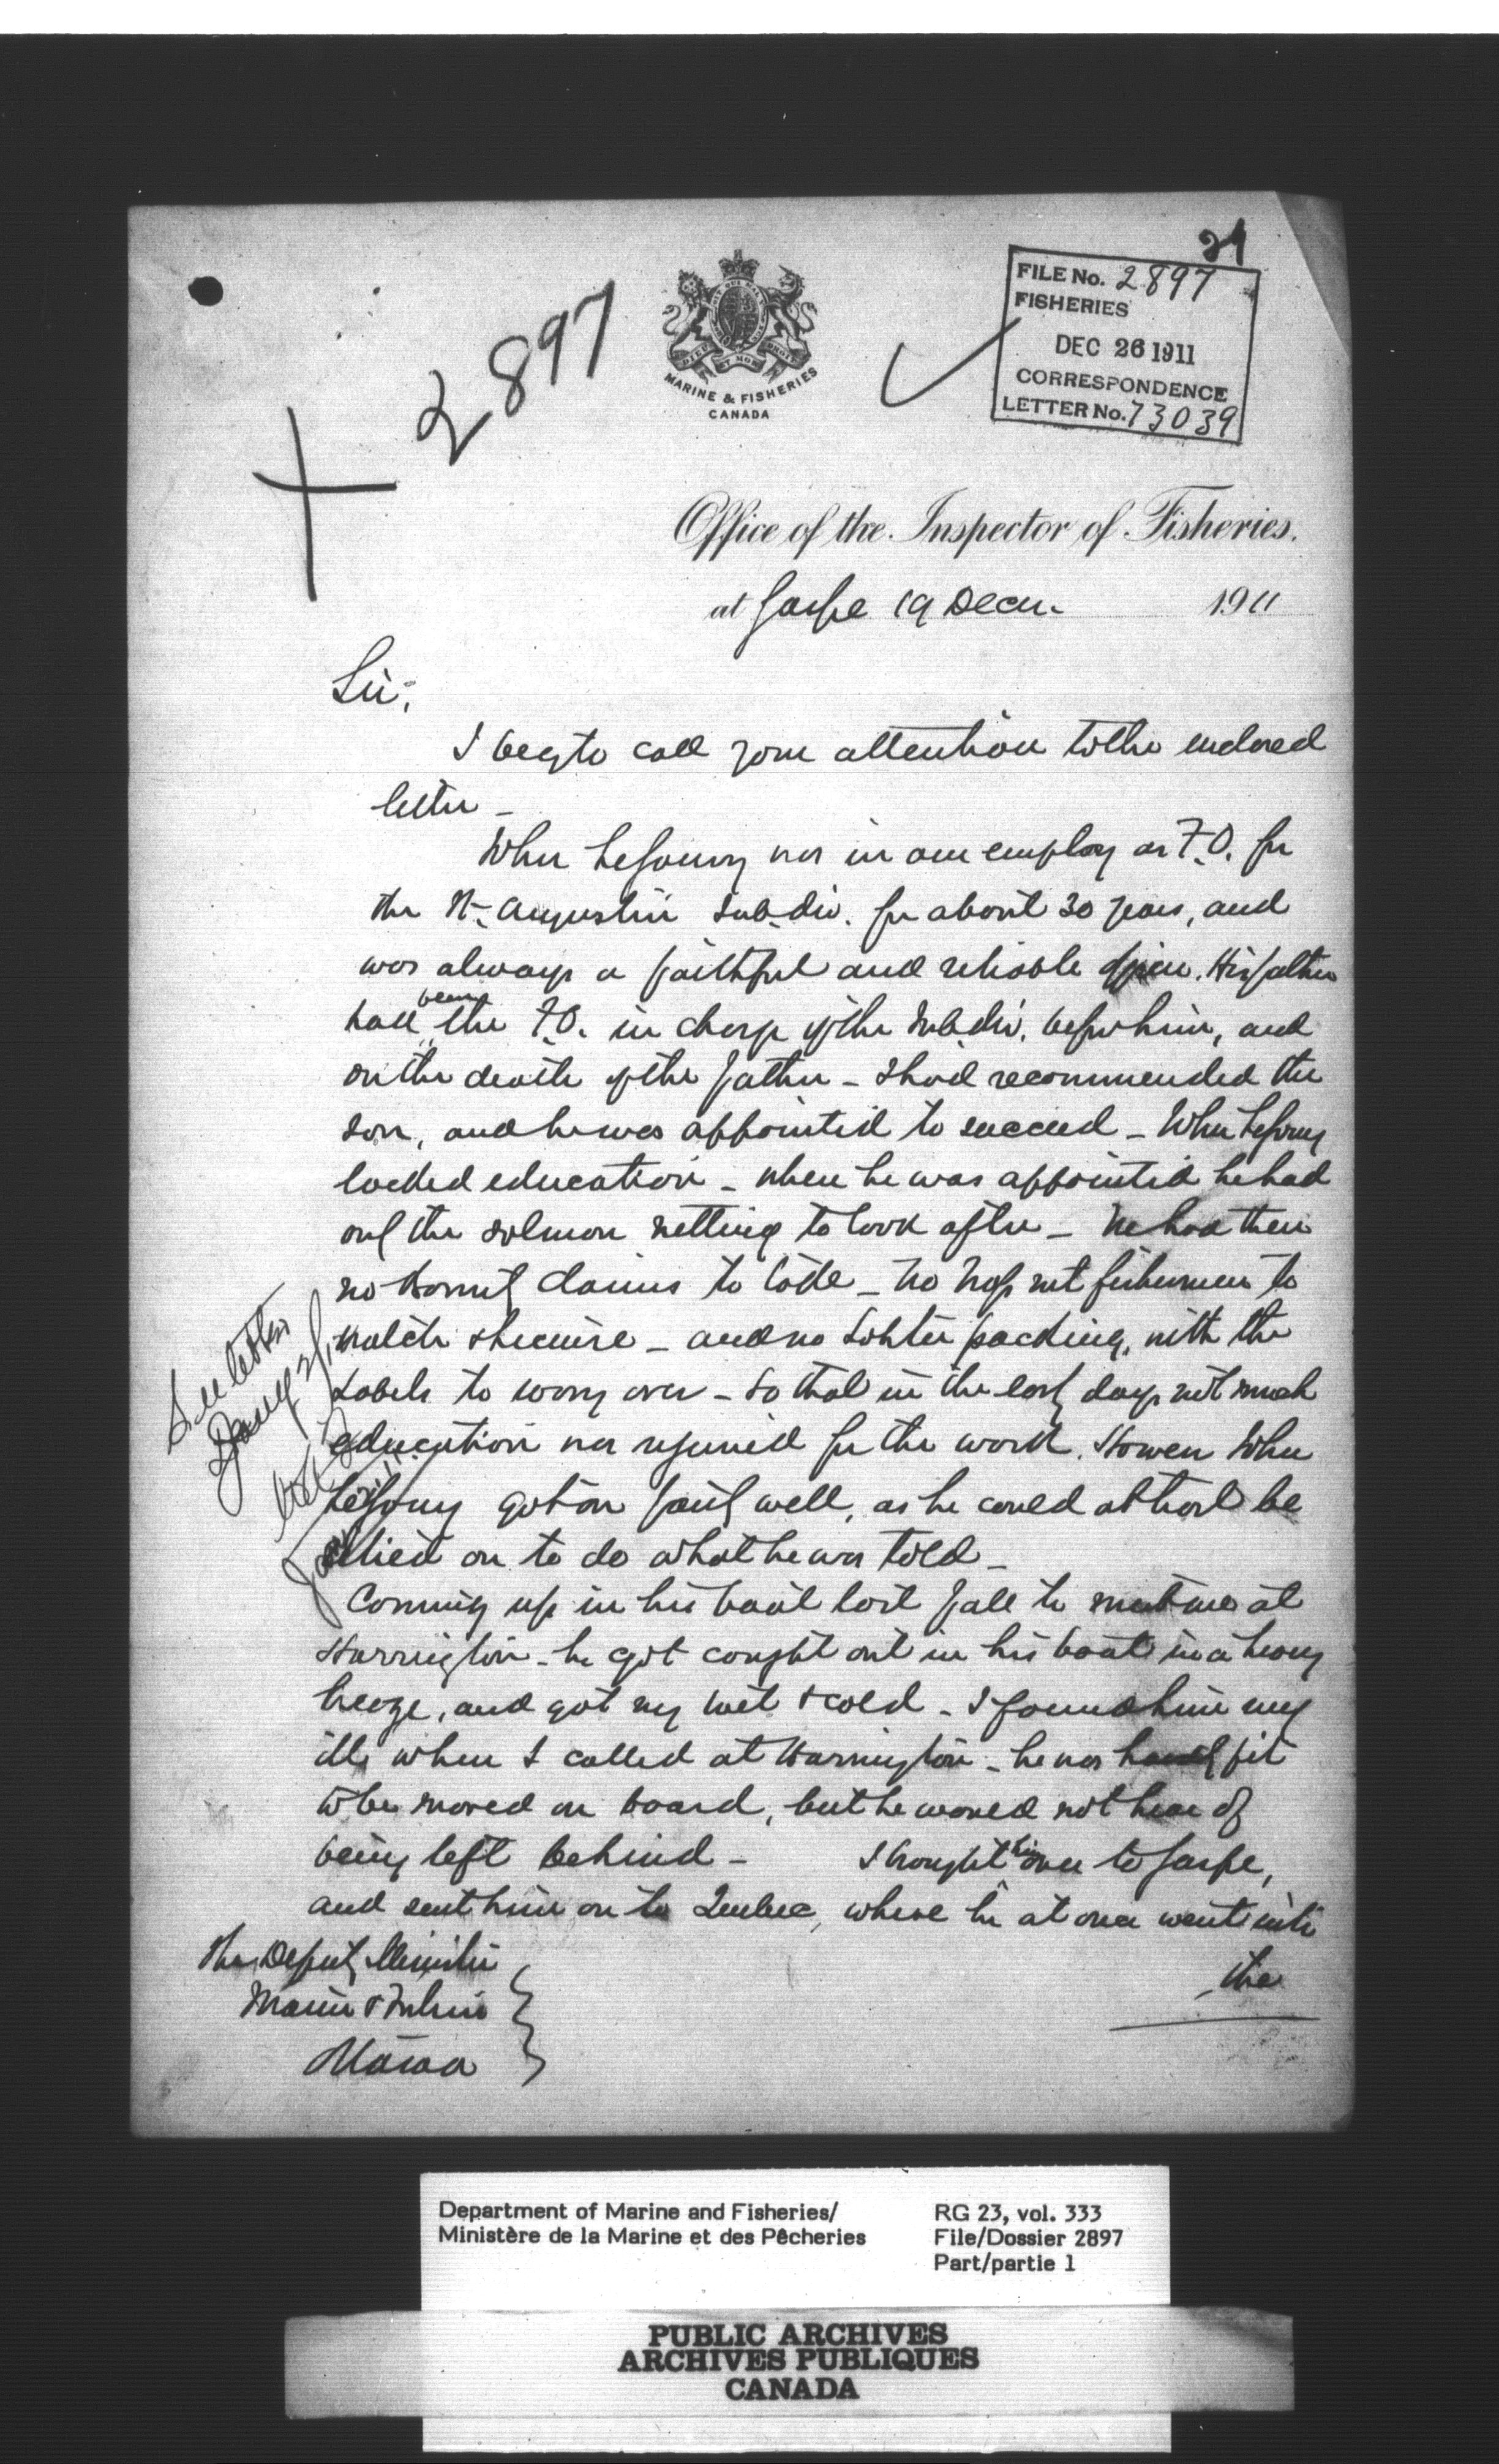 21
FILE No. 2897
FISHERIES
DEC 26 1911
CORRESPONDENCE
LETTER No. 73039
2897
DIEU ET MON DROIT
MARINE & FISHERIES
CANADA
Office of the Inspector of Fisheries.
at Gaspe 19 Decr. 1911
Sir,
I beg to call your attention to the enclosed
letter -
was in our employ as F.O. for
the St. Augustin Sub-div. for about 30 years, and
was always a faithful and reliable officer. His father
had been the F.O. in charge of the Sub div. before him, and
on the death of the father - I had recommended the
son, and he was appointed to succeed -
lacked education - when he was appointed he had
only the salmon netting to look after - We had then
no Bounty claims to take - no trap net fishermen to
watch & license - and no Lobster packing, with the
Labels to worry over - So that in the early days not much
education was required for the work. However
got on fairly well, as he could at least be
relied on to do what he was told -
Coming up in his boat last fall to meet me at
Harrington - he got caught out in his boat in a heavy
breeze, and got very wet & cold - I found him very
ill, when I called at Harrington - he was hardly fit
to be moved on board, but he would not hear of
being left behind - I brought him over to Gaspe,
and sent him on to Quebec, where he at once went into
the
The Deputy Minister
Marine & Fisheries
Ottawa
See letter
Department of Marine and Fisheries/
Ministère de la Marine et des Pêcheries
RG 23, vol. 333
File/Dossier 2897
Part/partie 1
PUBLIC ARCHIVES
ARCHIVES PUBLIQUES
CANADA